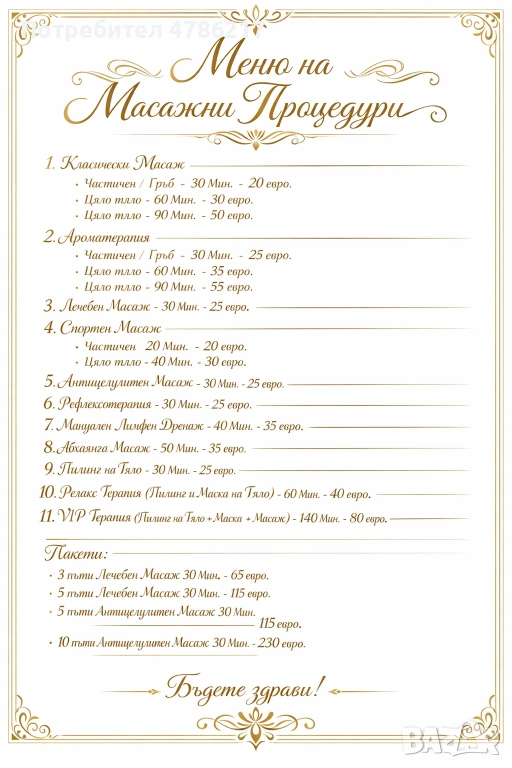 отребител 4786217
Меню на
Масажни Процедури
1. Класически Масаж
• Частичен / Гръб - 30 Мин. - 20 евро.
• Цяло тлло - 60 Мин. - 30 евро.
• Цяло тлло - 90 Мин. - 50 евро.
2. Ароматерапия
• Частичен / Гръб - 30 Мин. - 25 евро.
• Цяло тлло - 60 Мин. - 35 евро.
• Цяло тлло - 90 Мин. - 55 евро.
3. Лечебен Масаж - 30 Мин. - 25 евро.
4. Спортен Масаж
• Частичен 20 Мин. - 20 евро.
• Цяло тлло - 40 Мин. - 30 евро.
5. Антицелулитен Масаж - 30 Мин. - 25 евро.
6. Рефлексотерапия - 30 Мин. - 25 евро.
7. Мануален Лимфен Дренаж - 40 Мин. - 35 евро.
8. Абхаянга Масаж - 50 Мин. - 35 евро.
9. Пилинг на Тяло - 30 Мин. - 25 евро.
10. Релакс Терапия (Пилинг и Маска на Тяло) - 60 Мин. - 40 евро.
11. VIP Терапия (Пилинг на Тяло + Маска + Масаж) - 140 Мин. - 80 евро.
Пакети:
• 3 пъти Лечебен Масаж 30 Мин. - 65 евро.
• 5 пъти Лечебен Масаж 30 Мин. - 115 евро.
• 5 пъти Антицелулитен Масаж 30 Мин.
115 евро.
• 10 пъти Антицелулитен Масаж 30 Мин. - 230 евро.
Бъдете здрави!
BAZAR